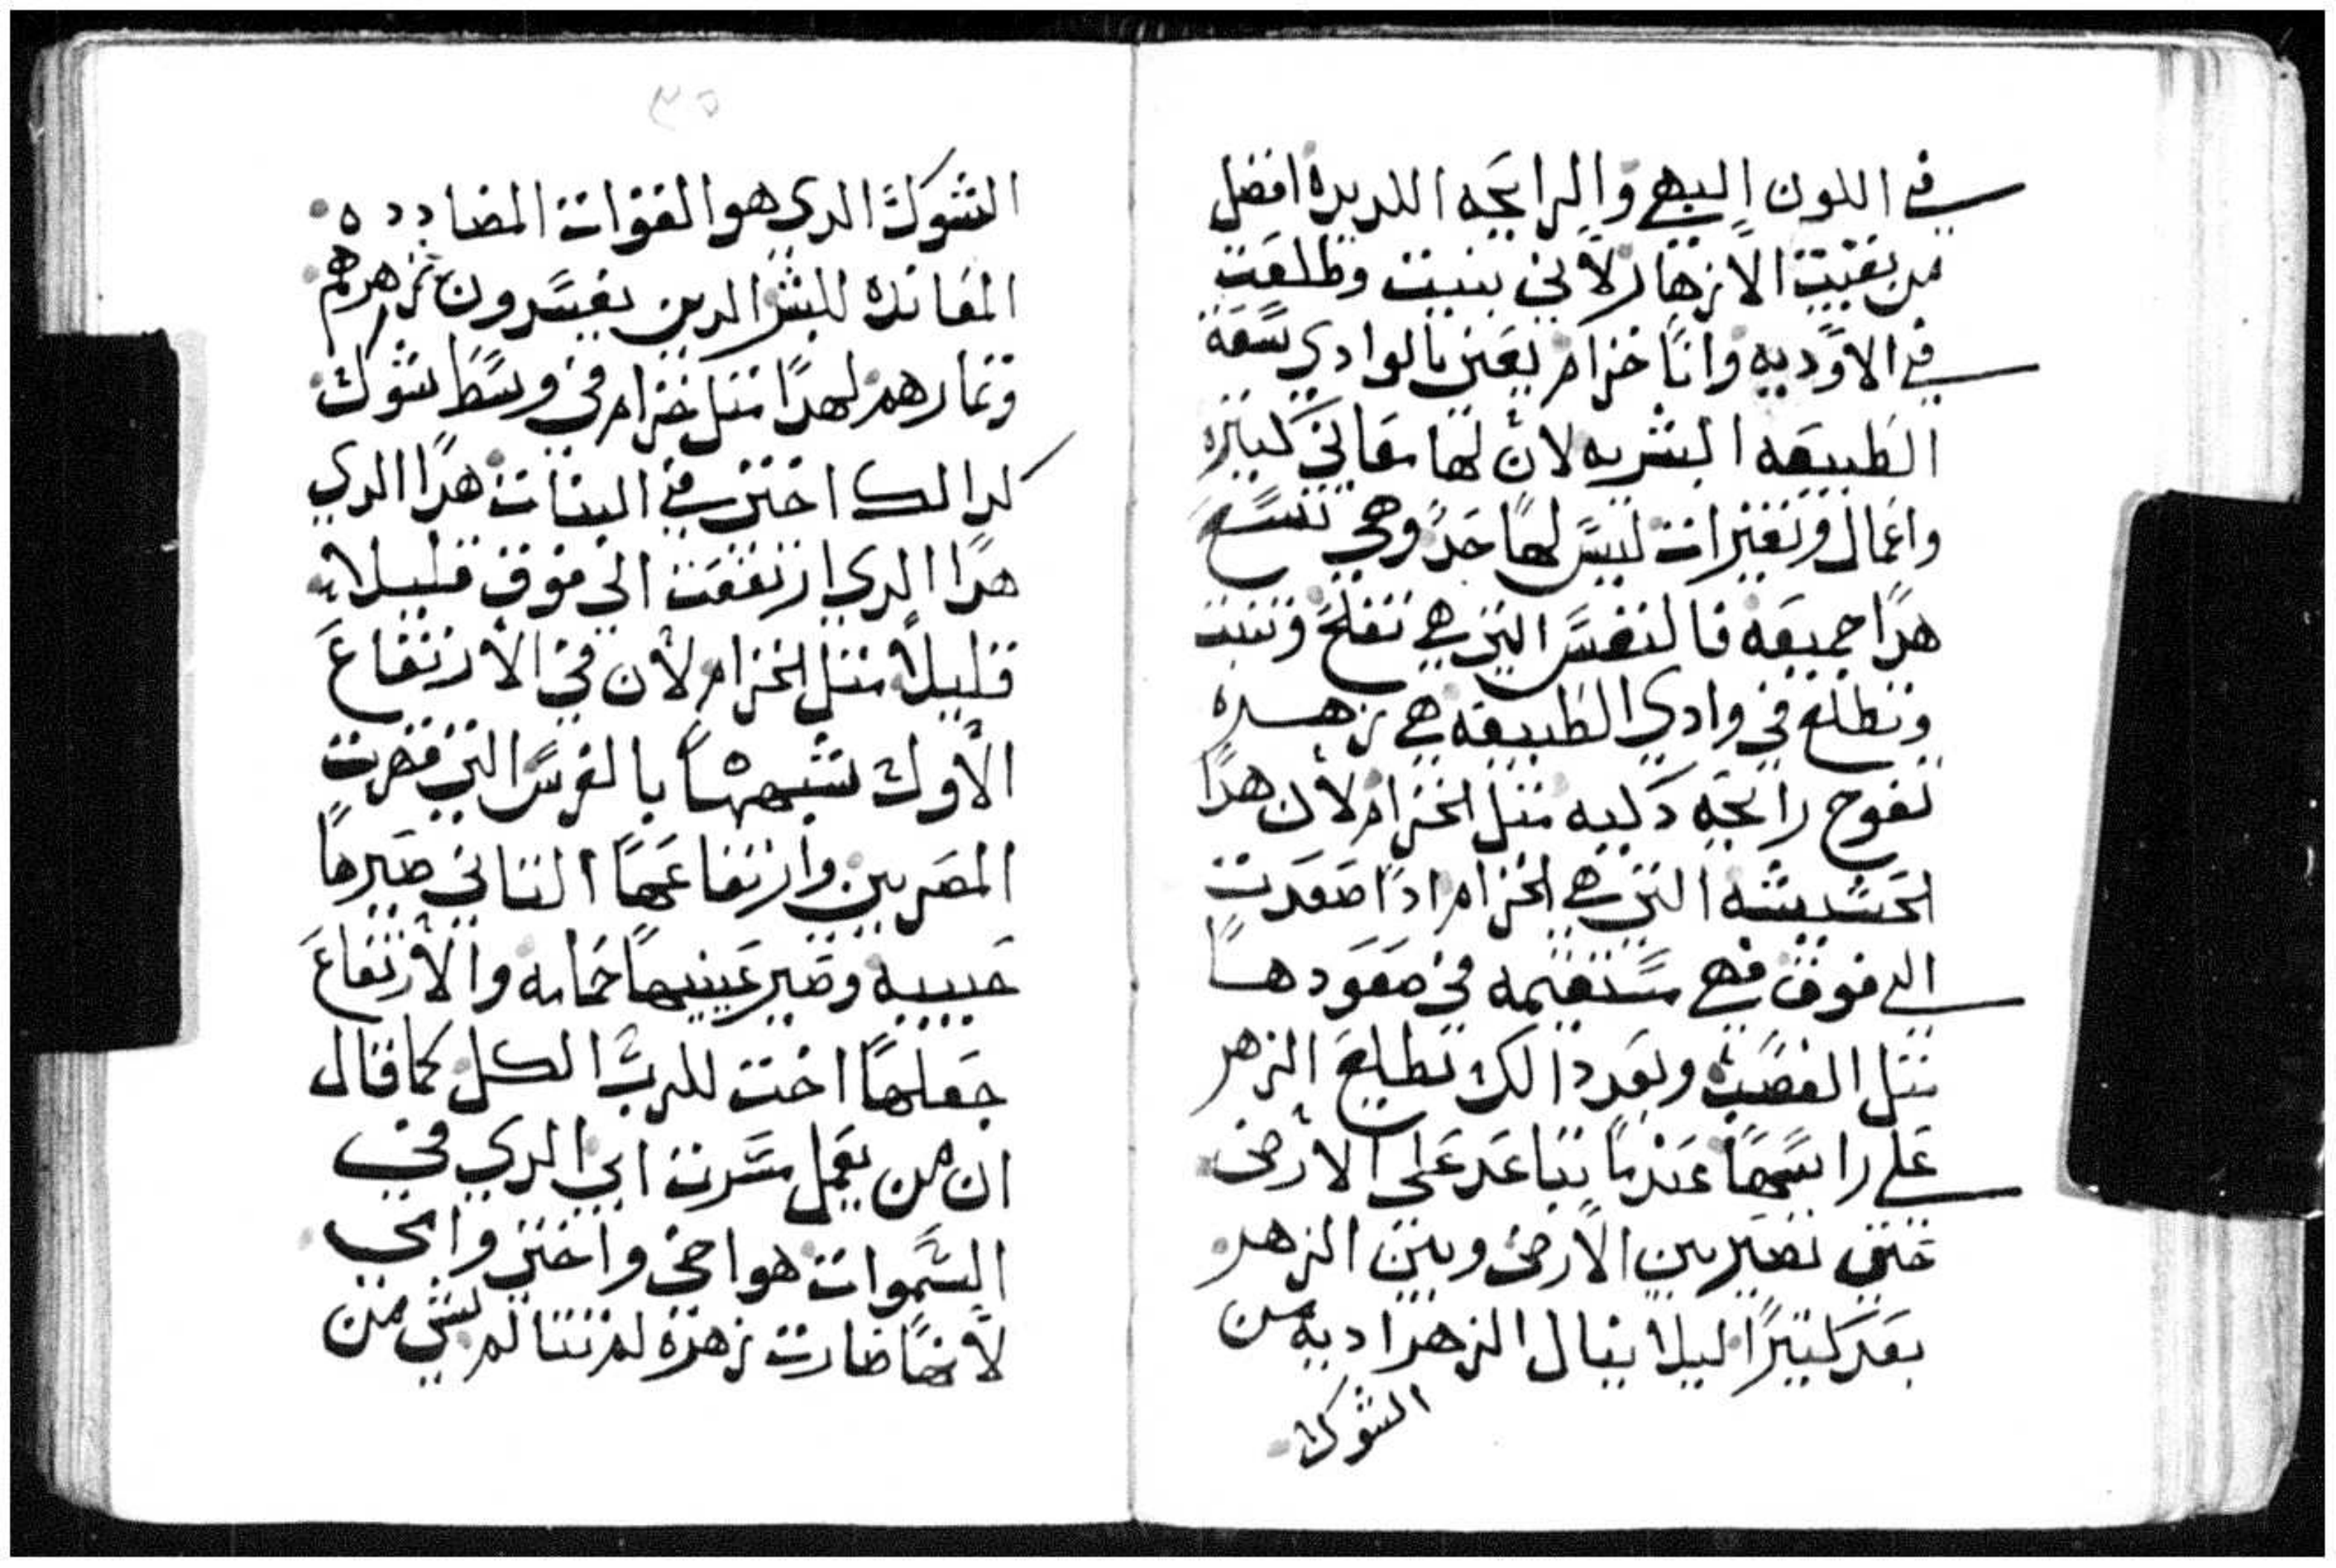 في اللون البهي والرايحه اللديده افضل
من بقيت الازهار لاني بنيت وطلعت
في الاوديه وانا خزام يعني بالوادي سعة
الطبيعه البشريه لان لها معاني كثيره
واعمال وتغيرات ليس لها حد وهي تتسع
هدا جميعه فالنفس التي هي تفلح وتنبت
وتطلع في وادي الطبيعه هي زهره
تفوح رايحه دكيه متل الخزام لان هدا
الحشيشه التي هي الخزام ادا صعدت
الي فوق فهي مستقيمه في صعودها
متل القصبه وبعد دالك تطلع الزهر
علي راسها عندما يتباعد على الارض
حتي تصير بين الارض وبين الزهر
بعد كتيرا ليلا ينال الزهر اديه من
الشوك
٣٥
الشوك الدي هو القوات المضادده
المعانده للبشر الدين يفسدون زهرهم
وتمارهم لهدا متل خزام في وسط شوك
كدالك اختي في البنات هدا الدي
هدا الدي ارتفعت الي فوق قليلا
قليلا متل الخزام لان في الارتفاع
الاول شبهها بالفرس التي قهرت
المصريين وارتفاعها التاني صيرها
حبيبه وصير عينيها حمامه والارتفاع
جعلها اخت للرب الكل كما قال
ان من يعمل مسرت ابي الدي في
السموات هو اخي واختي وامي
لانها صارت زهرة لم تتالم بشي من